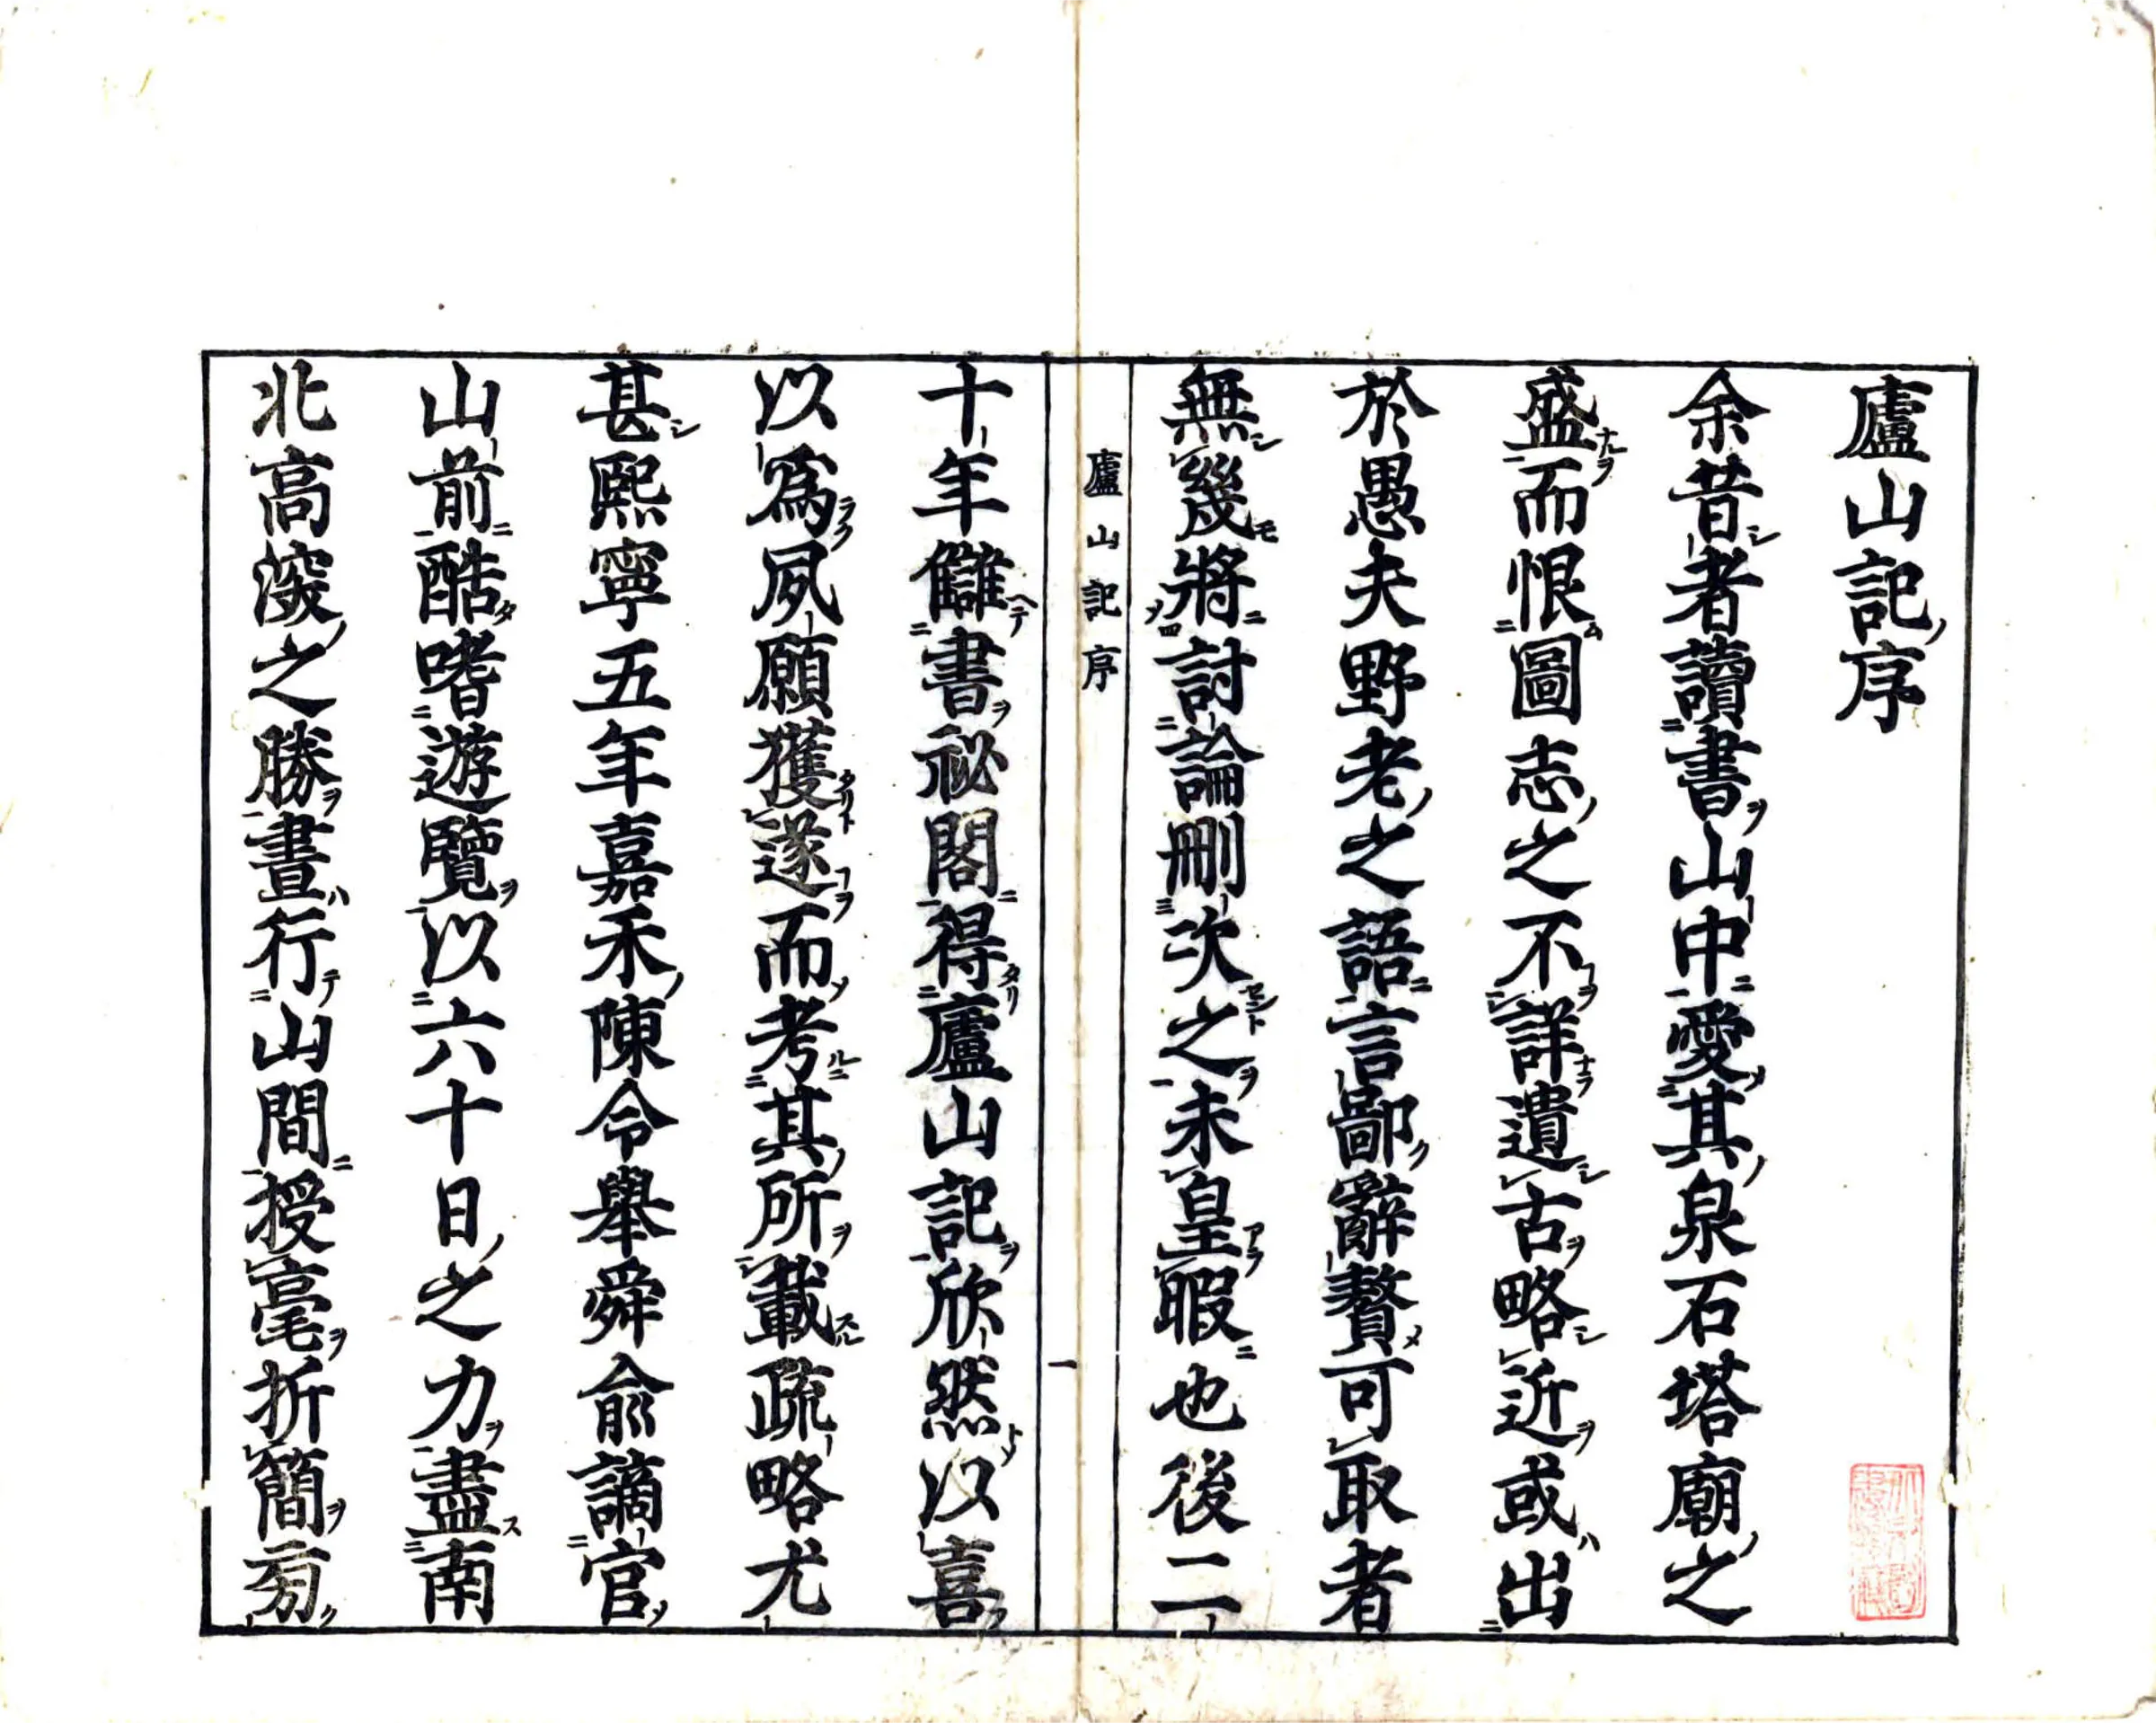 廬山記序
余昔者讀書山中愛其泉石塔廟之
盛而恨圖志之不詳遺古略近或出
於愚夫野老之語言鄙辭贅可取者
無幾將討論刪次之未皇暇也後二
廬山記序 一
十年讎書祕閣得廬山記欣然以喜
以爲夙願獲遂而考其所載疏略尤
甚熙寧五年嘉禾陳令舉舜俞謫官
山前酷嗜遊覽以六十日之力盡南
北高深之勝晝行山間授毫折簡旁